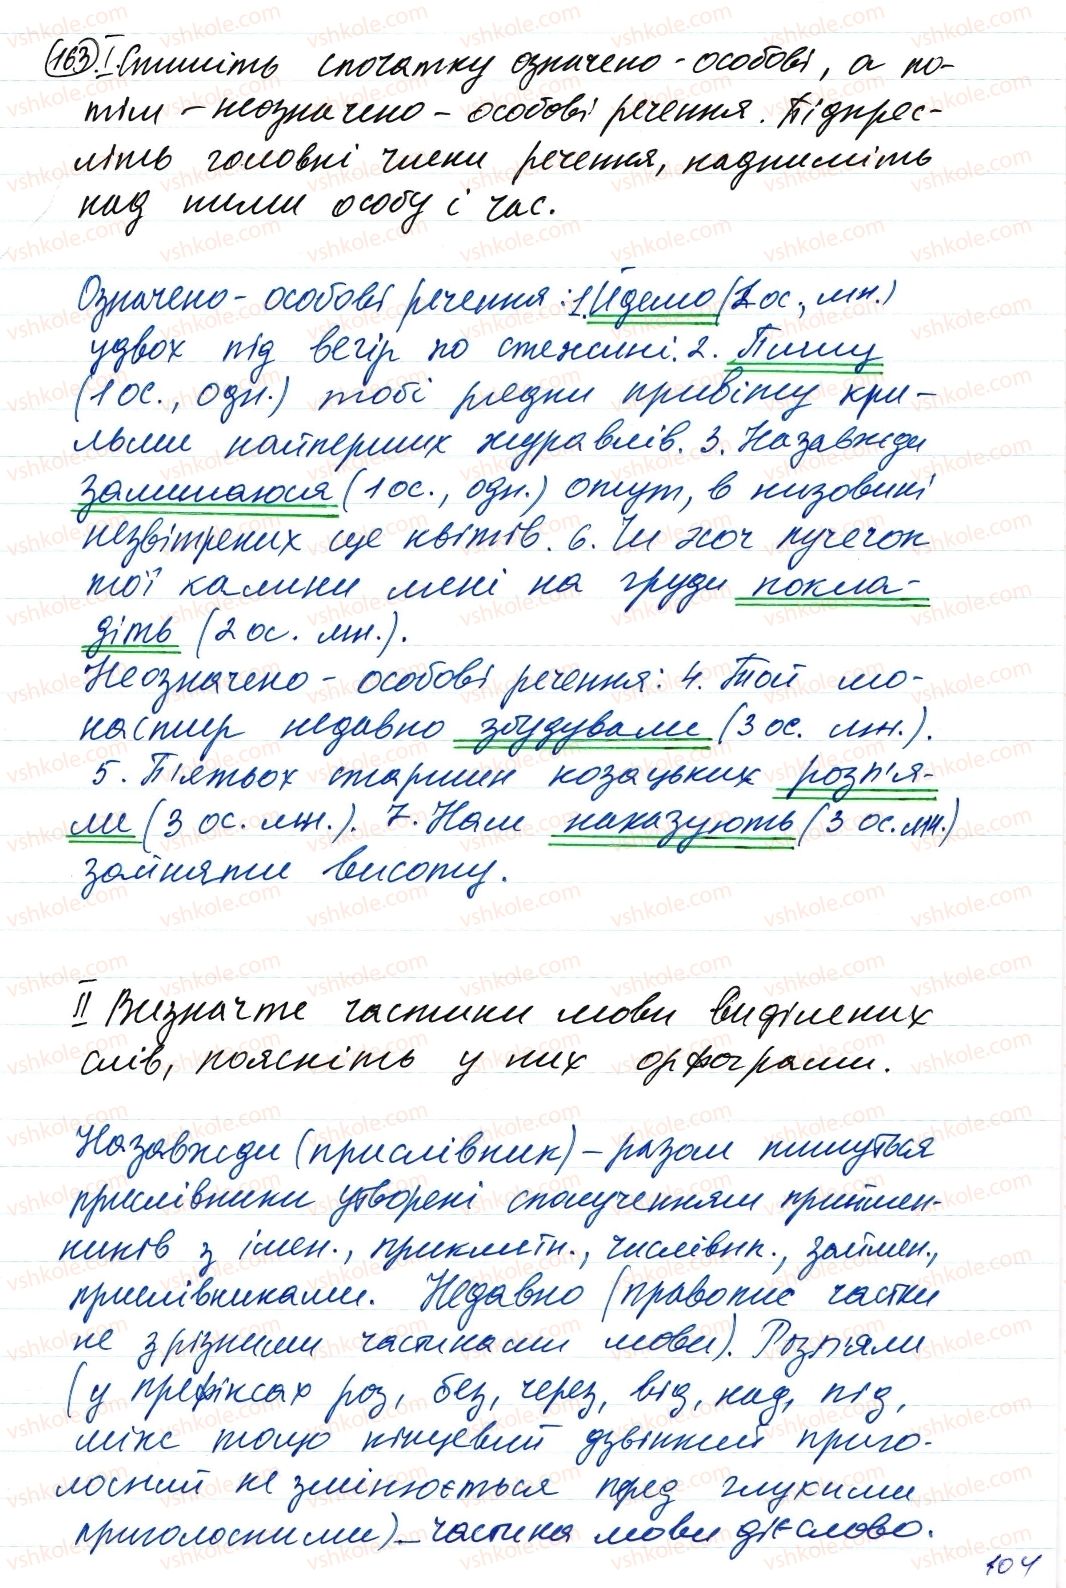 163. I. Спишіть спочатку означено-особові, а по-
тім – неозначено-особові речення. Підкрес-
літь головні члени речення, надпишіть
над ними особу і час.
Означено-особові речення: 1. Йдемо (1 ос., мн.)
удвох під вечір по стежині. 2. Пишу
(1 ос., одн.) тобі рядки привіту кри-
льми найперших журавлів. 3. Назавжди
залишаюся (1 ос., одн.) отут, в низовині
незвітрених ще квітів. 6. Чи хоч пучечок
тої калини мені на груди покла-
діть (2 ос. мн.).
Неозначено-особові речення: 4. Той мо-
настир недавно збудували (3 ос. мн.).
5. П'ятьох старшин козацьких розп'я-
ли (3 ос. мн.). 7. Нам наказують (3 ос. мн.)
зайняти висоту.
II Визначте частини мови виділених
слів, поясніть у них орфограми.
Назавжди (прислівник) – разом пишуться
прислівники утворені сполученням приймен-
ників з імен., прикметн., числівник., займен.,
прислівниками. Недавно (правопис частки
не з різними частинами мови). Розп'яли
(у префіксах роз, без, через, від, над, під,
між тощо кінцевий дзвінкий приго-
лосний не змінюється перед глухими
приголосними) – частина мови дієслово.
104
vshkole.com